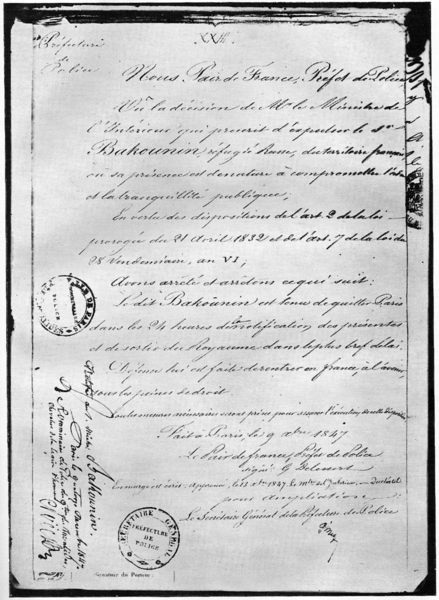 Préfecture
de
Police
XXII.
Nous, Pair de France, Préfet de Police
Vu la décision de Mr le Ministre de
l'Intérieur qui prescrit d'expulser le Sr
Bakounin, réfugié Russe, du territoire français
où sa présence est de nature à compromettre l'ordre
et la tranquillité publique;
En vertu des dispositions de l'art. 2 de la loi
prorogée du 21 Avril 1832 et de l'art. 7 de la loi du
28 Vendémiaire, an VI;
Avons arrêté et arrêtons ce qui suit:
Le dit Bakounin est tenu de quitter Paris
dans les 24 heures de la notification des présentes
et de sortir du Royaume dans le plus bref délai.
Défense lui est faite de rentrer en france, à l'avenir,
sous les peines de droit.
Toutes mesures nécessaires seront prises pour assurer l'exécution de cette disposition
Fait à Paris, le 9 Xbre 1847
Le Pair de france, Préfet de Police
Signé G. Delessert
En marge est écrit: Approuvé, le Xbre 1847, le Mtre de l'Intérieur
pour ampliation
Le Secrétaire Général de la Préfecture de Police
VILLE DE PARIS
POLICE
Bakounin
Paris le quatorze Décembre 1847
Le Commissaire de Police
SECRÉTAIRE GÉNÉRAL
PRÉFECTURE
DE
POLICE
Signature du Porteur.